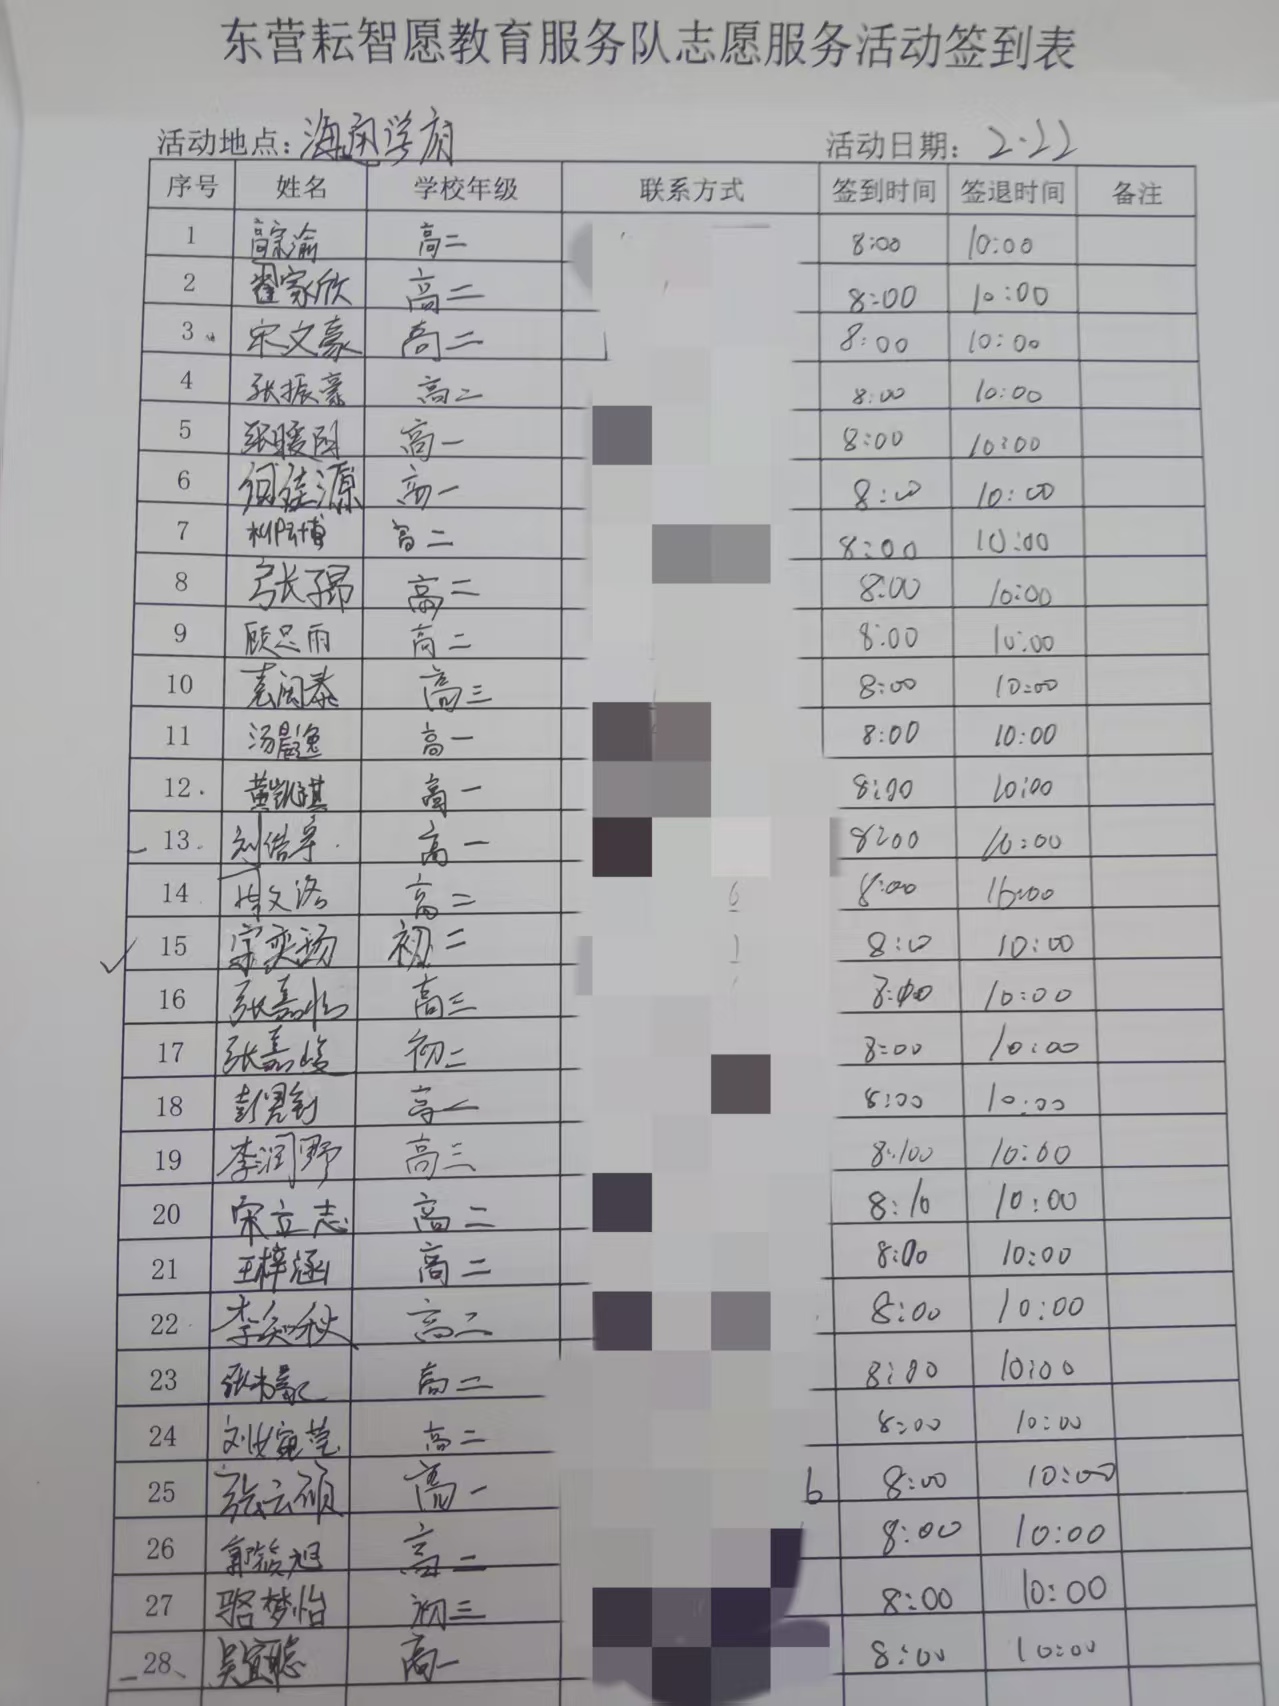 东营耘智愿教育服务队志愿服务活动签到表
活动地点：海通学府 活动日期：2.22
序号 姓名 学校年级 联系方式 签到时间 签退时间 备注
1 高宗渝 高二 8:00 10:00
2 翟家欣 高二 8:00 10:00
3 宋文豪 高二 8:00 10:00
4 张振豪 高二 8:00 10:00
5 张暖 高一 8:00 10:00
6 何佳源 高一 8:00 10:00
7 高二 8:00 10:00
8 张子昂 高二 8:00 10:00
9 顾思雨 高二 8:00 10:00
10 袁闯泰 高三 8:00 10:00
11 汤晨逸 高一 8:00 10:00
12 黄凯琪 高一 8:00 10:00
13 刘浩宇 高一 8:00 10:00
14 文洛 高二 6 8:00 10:00
15 宗奕扬 初二 8:0 10:00
16 张嘉怡 高三 8:00 10:00
17 张嘉峻 初二 8:00 10:00
18 彭 高一 8:00 10:00
19 李润野 高三 8:00 10:00
20 宋立志 高二 8:10 10:00
21 王梓涵 高二 8:00 10:00
22 李知秋 高二 8:00 10:00
23 张 高二 8:00 10:00
24 刘 高二 8:00 10:00
25 张云硕 高一 6 8:00 10:00
26 郭筱旭 高二 8:00 10:00
27 骆梦怡 初三 8:00 10:00
28 吴宜聪 高一 8:00 10:00